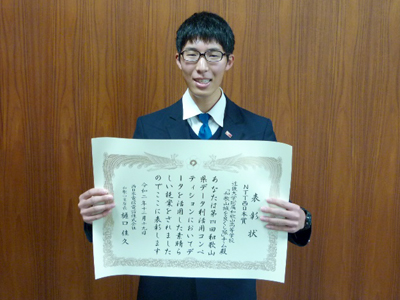 表彰状
NTT西日本賞
あなたは第四回和歌山
県データ利活用コンペ
ティションにおいてデ
ータを活用した素晴ら
しい提案をされました
のでここに表彰します
令和二年十二月十九日
西日本電信電話株式会社
樋口 佳久